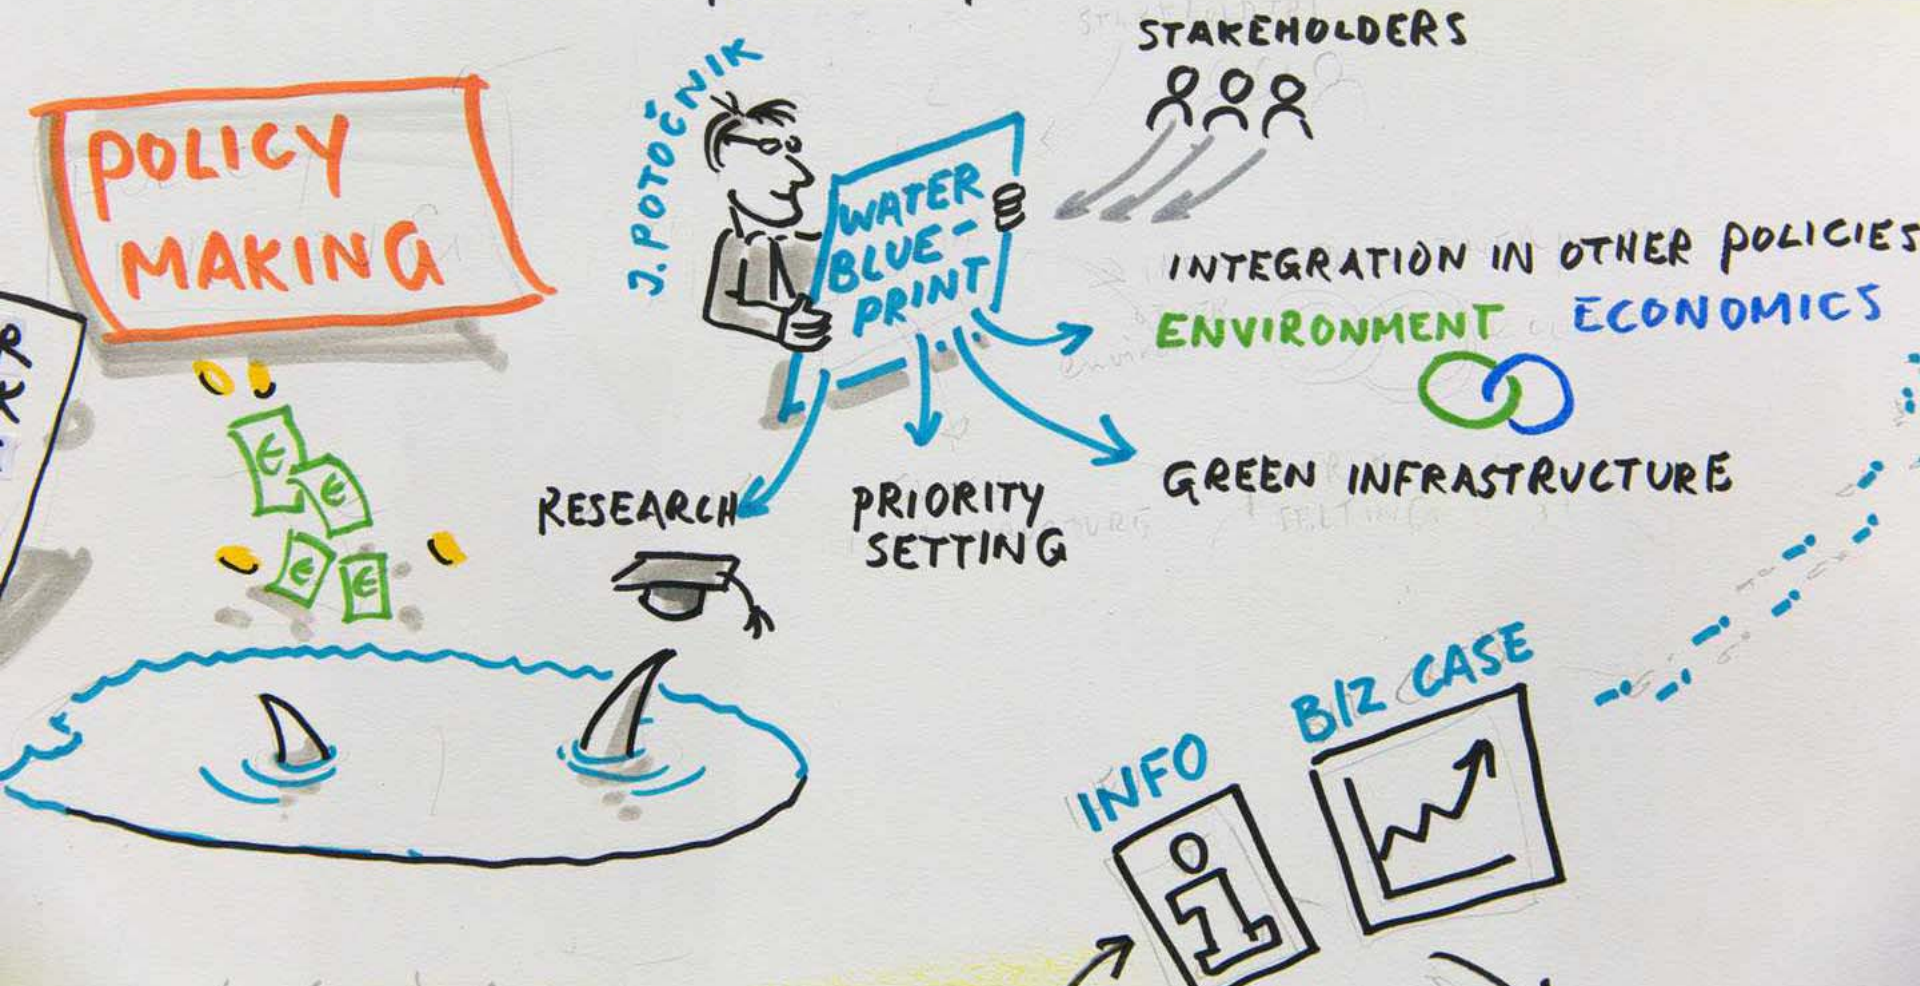 POLICY
MAKING
J. POTOČNIK
WATER
BLUE-
PRINT
STAKEHOLDERS
INTEGRATION IN OTHER POLICIES
ENVIRONMENT ECONOMICS
GREEN INFRASTRUCTURE
RESEARCH
PRIORITY
SETTING
€
€
€
€
INFO
i
BIZ CASE